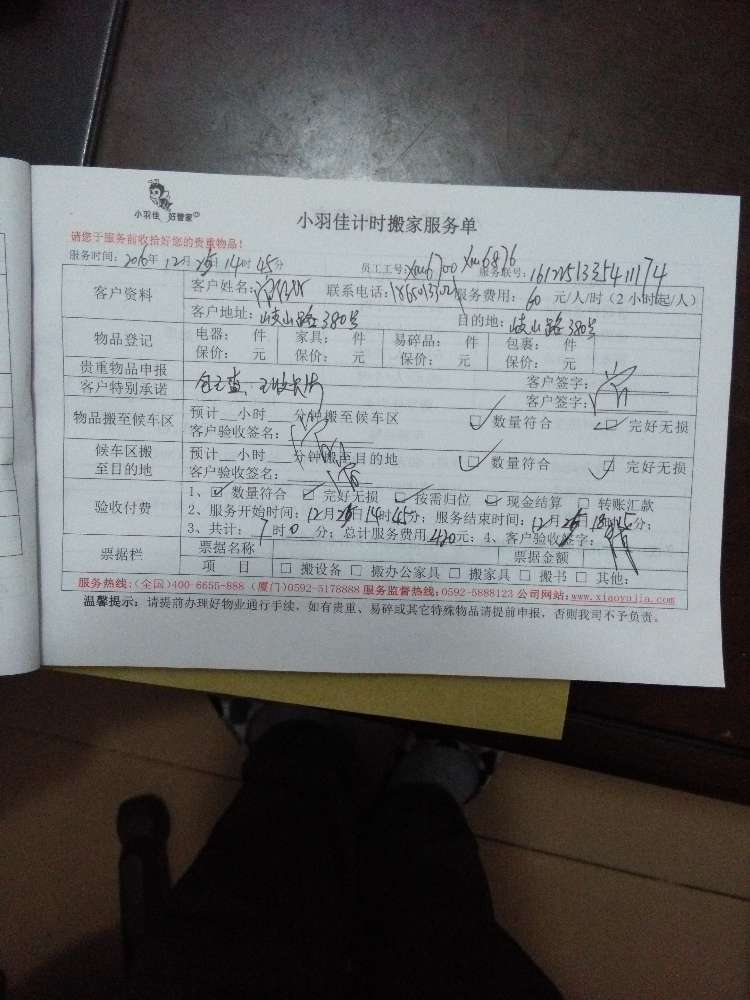 小羽佳 好管家
小羽佳计时搬家服务单
请您于服务前收拾好您的贵重物品！
服务时间：2016年12月25日14时45分 员工工号：xm6700 xm6876 服务联号：
客户资料 客户姓名： 联系电话： 服务费用：60元/人/时（2小时起/人）
客户地址：岐山路380号 目的地：岐山路380号
物品登记 电器： 件 家具： 件 易碎品： 件 包裹： 件
保价： 元 保价： 元 保价： 元 保价： 元
贵重物品申报 客户签字：
客户特别承诺 客户签字：
物品搬至候车区 预计__小时__分钟搬至候车区 ☑ 数量符合 ☑ 完好无损
客户验收签名：
候车区搬至目的地 预计__小时__分钟搬至目的地 ☑ 数量符合 ☑ 完好无损
客户验收签名：
验收付费 1、☑ 数量符合 ☑ 完好无损 ☑ 按需归位 ☑ 现金结算 □ 转账汇款
2、服务开始时间：12月25日14时45分；服务结束时间：12月25日18时15分；
3、共计：7时0分；总计服务费用420元；4、客户验收签字：
票据栏 票据名称 票据金额
项 目 □ 搬设备 □ 搬办公家具 □ 搬家具 □ 搬书 □ 其他：
服务热线：（全国）400-6655-888（厦门）0592-5178888 服务监督热线：0592-5888123 公司网站：www.xiaoyujia.com
温馨提示：请提前办理好物业通行手续，如有贵重、易碎或其它特殊物品请提前申报，否则我司不予负责。